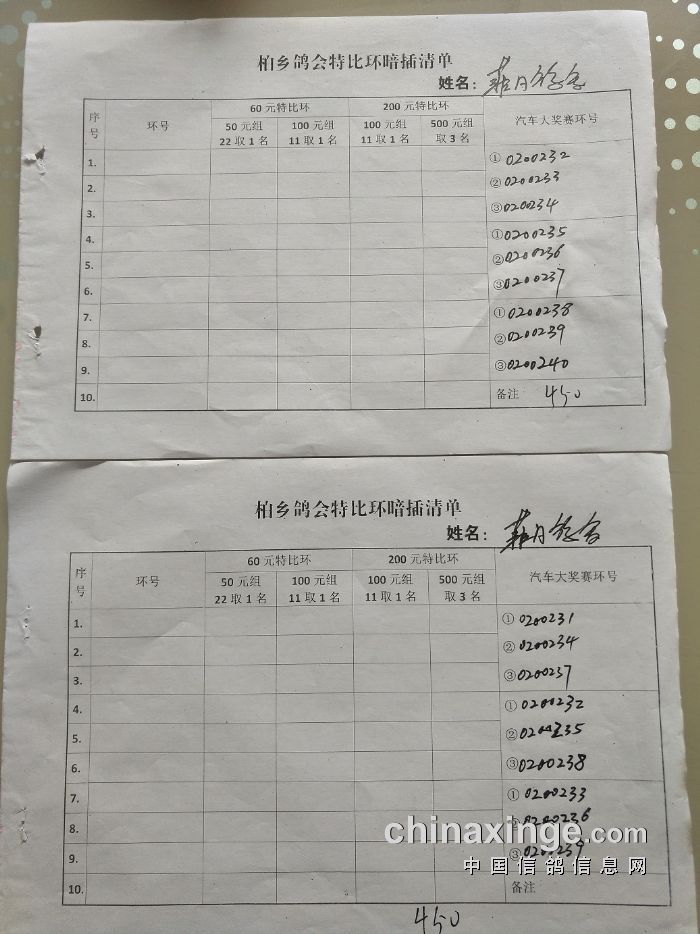 柏乡鸽会特比环暗插清单
姓名：
序号 环号 60元特比环 200元特比环 汽车大奖赛环号
50元组 22取1名 100元组 11取1名 100元组 11取1名 500元组 取3名
1. ①0200232
2. ②0200233
3. ③0200234
4. ①0200235
5. ②0200236
6. ③0200237
7. ①0200238
8. ②0200239
9. ③0200240
10. 备注 450
柏乡鸽会特比环暗插清单
姓名：
序号 环号 60元特比环 200元特比环 汽车大奖赛环号
50元组 22取1名 100元组 11取1名 100元组 11取1名 500元组 取3名
1. ①0200231
2. ②0200234
3. ③0200237
4. ①0200232
5. ②0200235
6. ③0200238
7. ①0200233
8. 0200236
9. ③0200239
10. 备注
450
chinaxinge.com
中国信鸽信息网